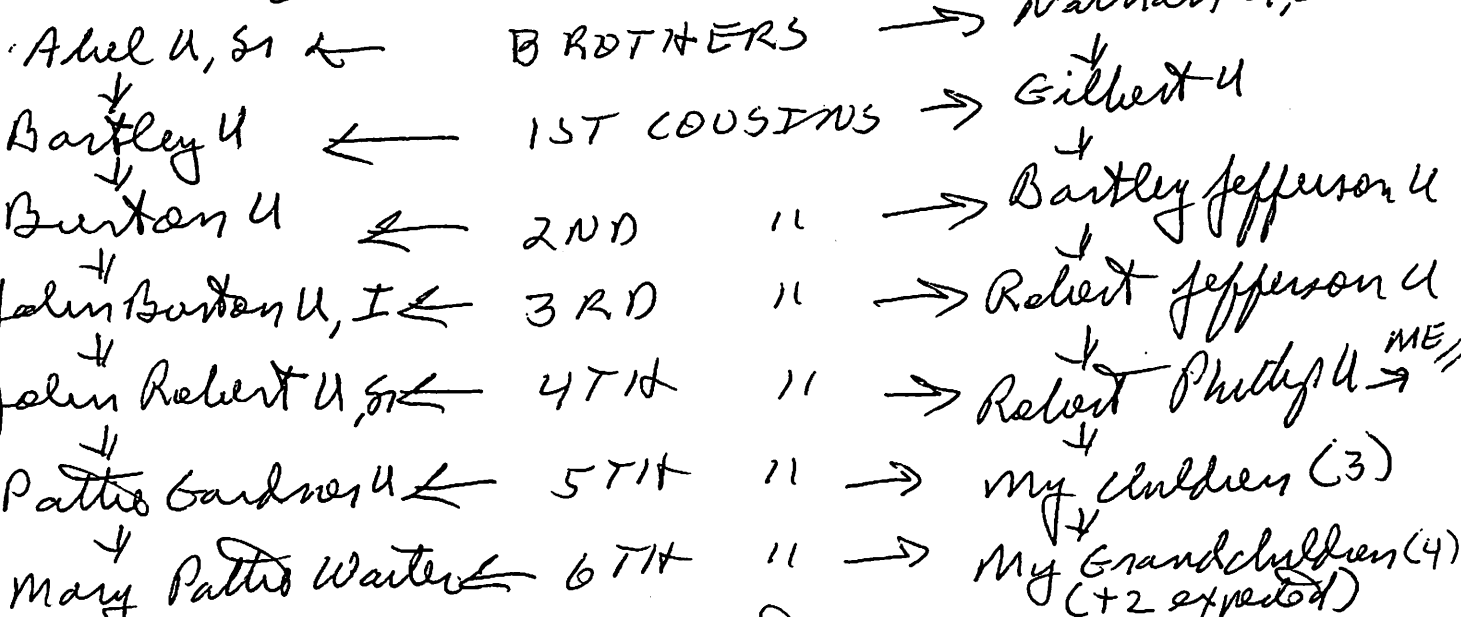 Abel U, Sr ← BROTHERS →
Bartley U ← 1ST COUSINS → Gilbert U
Burton U ← 2ND " → Bartley Jefferson U
John Burton U, I ← 3RD " → Robert Jefferson U
John Robert U, Sr ← 4TH " → Robert Phillip U → ME
Pattie Gardner U ← 5TH " → My Children (3)
Mary Pattie Walter ← 6TH " → My Grandchildren (4)
(+2 expected)